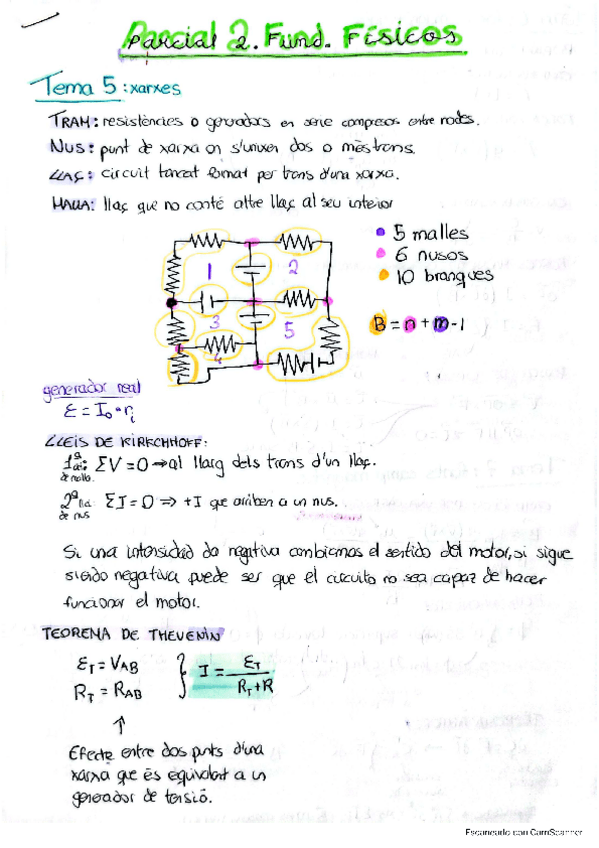 Parcial 2. Fund. Físicos
Tema 5: xarxes
TRAM: resistències o generadors en serie compresos entre nodes.
NUS: punt de xarxa on s'uneixen dos o més trams.
LLAÇ: circuit tancat format per trams d'una xarxa.
MALLA: llaç que no conté altre llaç al seu interior
1 2
3 5
4
5 malles
6 nusos
10 branques
B = n + m - 1
generador real
ε = I₀ · rᵢ
LLEIS DE KIRCHHOFF:
1ª llei de malla: ΣV = 0 → al llarg dels trams d'un llaç.
2ª llei de nus: ΣI = 0 => +I que arriben a un nus.
Si una intensidad da negativa cambiamos el sentido del motor, si sigue
siendo negativa puede ser que el circuito no sea capaz de hacer
funcionar el motor.
TEOREMA DE THEVENIN
ε_T = V_AB
R_T = R_AB
I = ε_T / (R_T + R)
Efecte entre dos punts d'una
xarxa que és equivalent a un
generador de tensió.
Escaneado con CamScanner